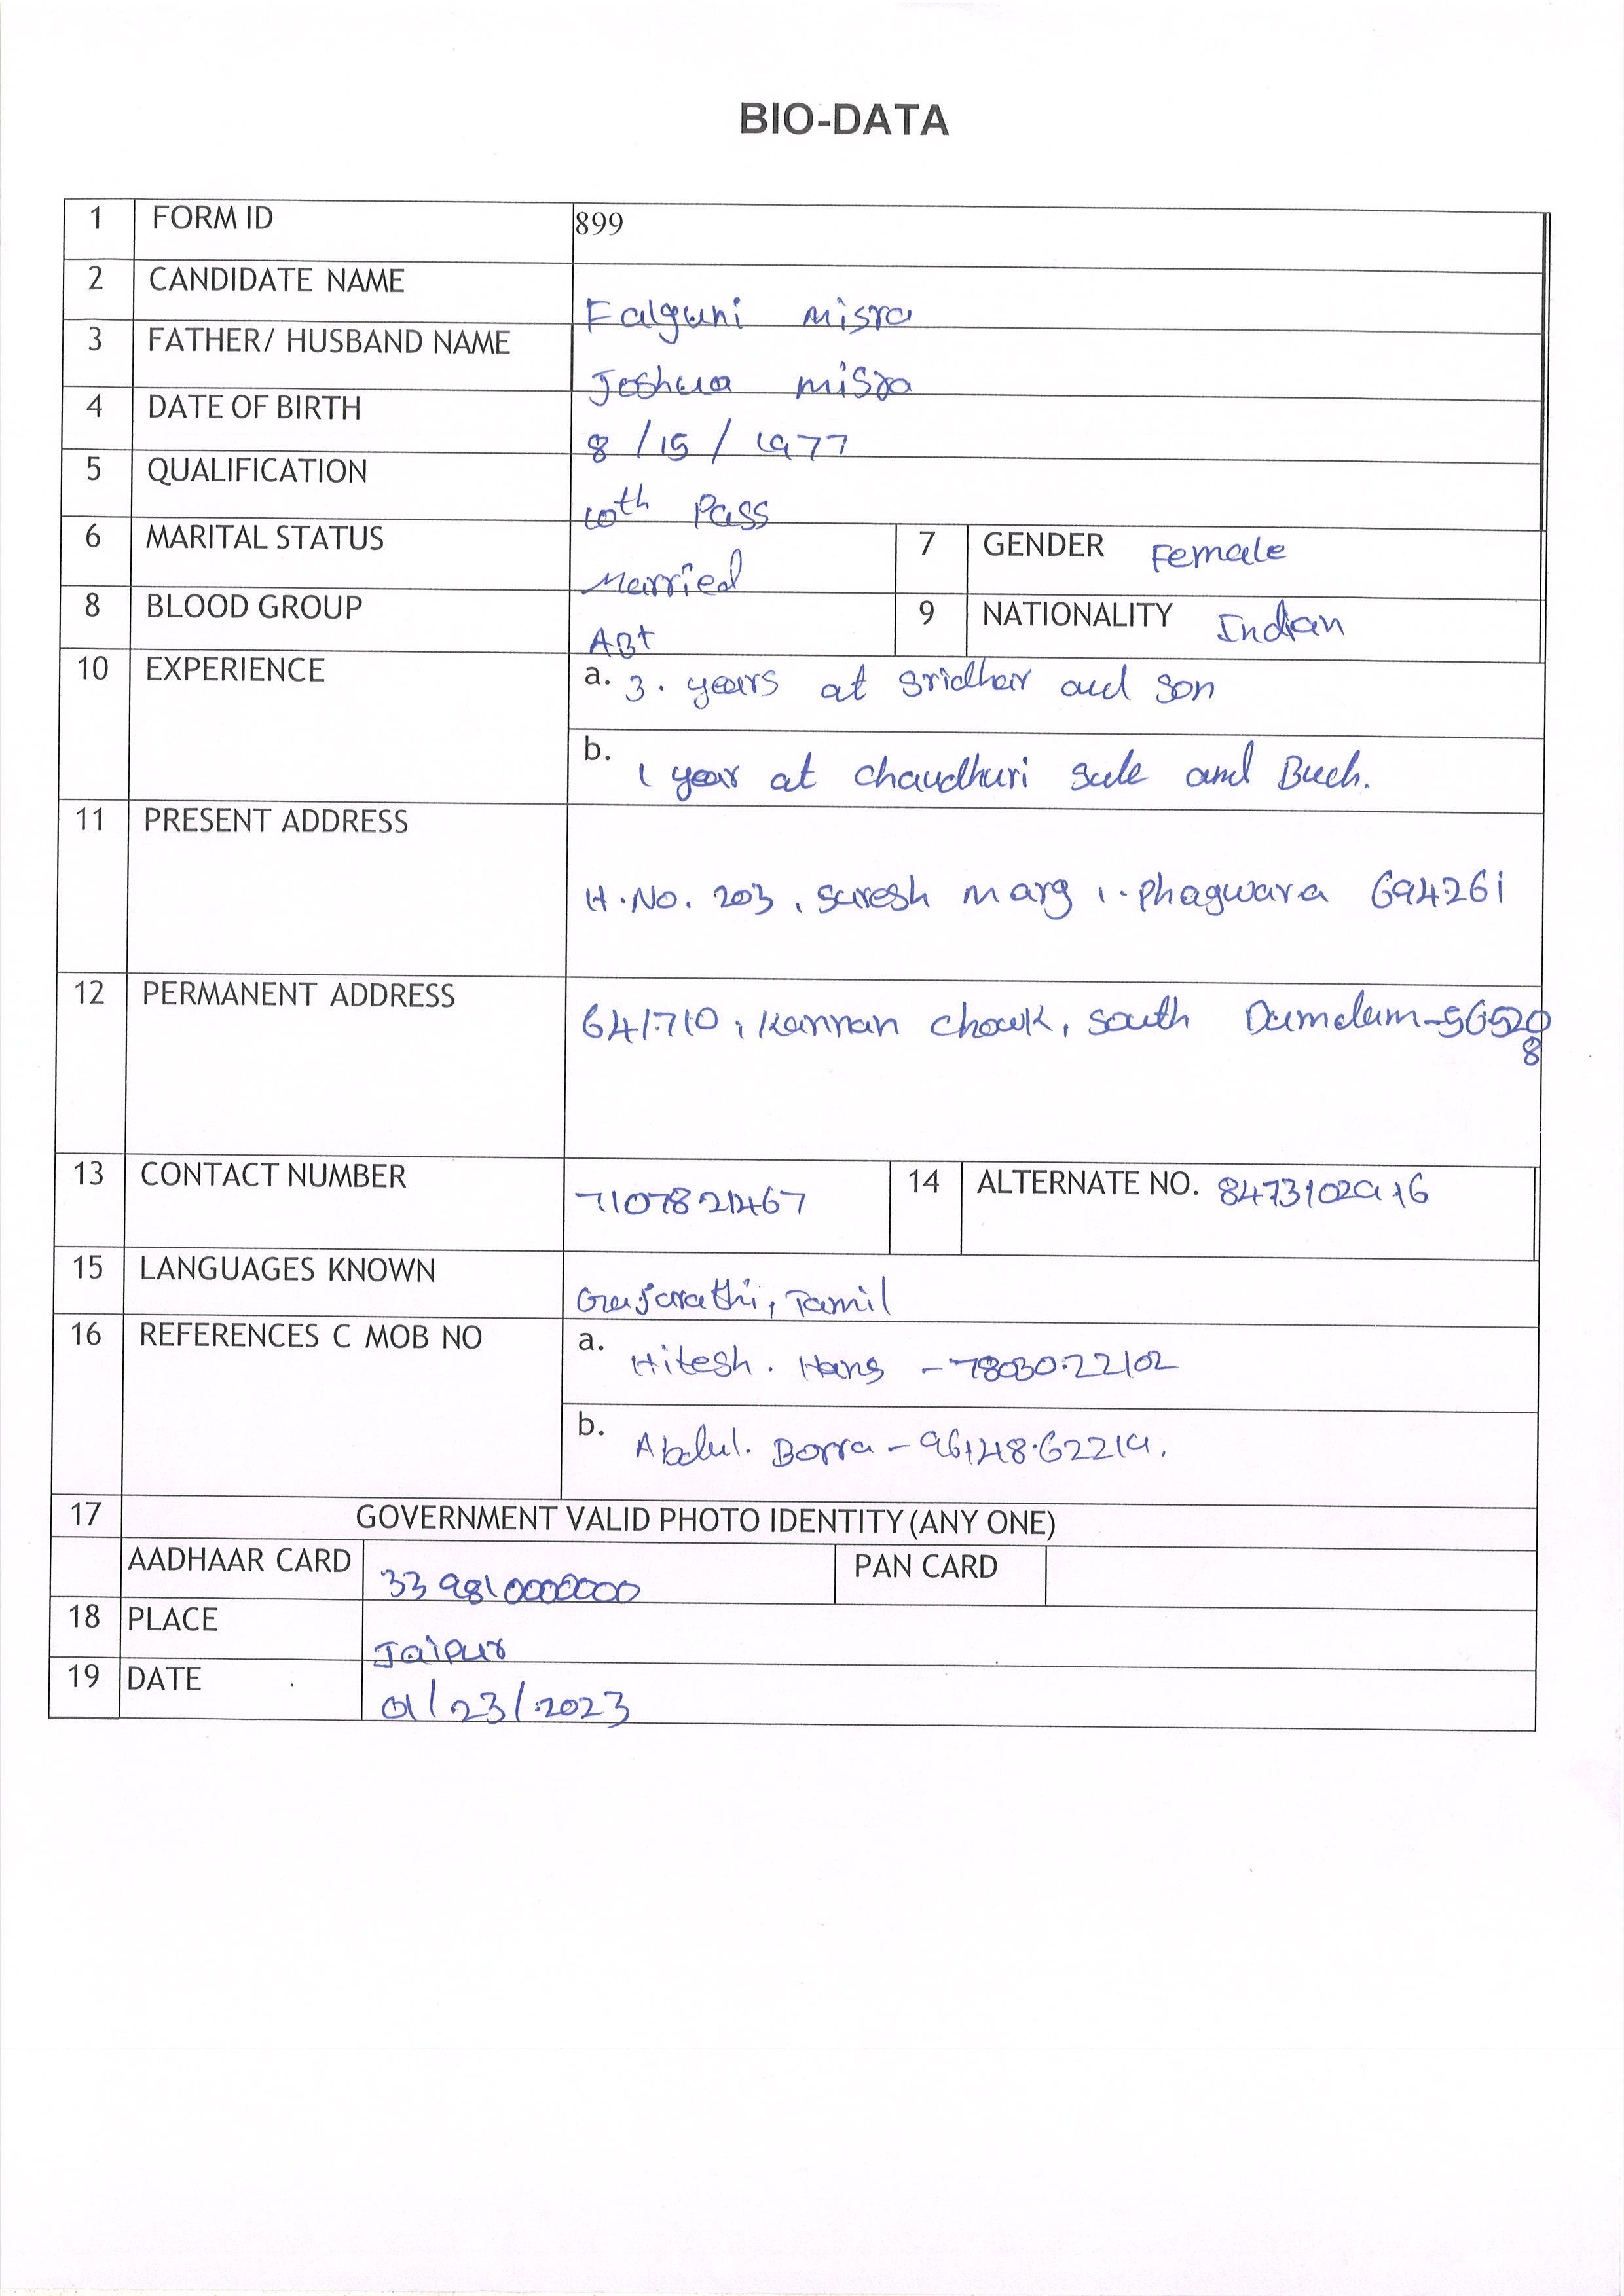 BIO-DATA
1 FORM ID 899
2 CANDIDATE NAME Falguni Misra
3 FATHER/ HUSBAND NAME Joshua Misra
4 DATE OF BIRTH 8/15/1977
5 QUALIFICATION 10th Pass
6 MARITAL STATUS Married 7 GENDER Female
8 BLOOD GROUP AB+ 9 NATIONALITY Indian
10 EXPERIENCE a. 3. years at Sridhar and son
b. 1 year at chaudhuri Sule and Buch.
11 PRESENT ADDRESS
H.No. 203, Suresh Marg, Phagwara 694261
12 PERMANENT ADDRESS 641710, Kannan Chowk, South Dumdum-
13 CONTACT NUMBER 7107821467 14 ALTERNATE NO. 8473102916
15 LANGUAGES KNOWN Gujarathi, Tamil
16 REFERENCES C MOB NO a. Hitesh. Hans - 7803022102
b. Abdul. Borra - 9614862219.
17 GOVERNMENT VALID PHOTO IDENTITY (ANY ONE)
AADHAAR CARD 339810000000 PAN CARD
18 PLACE Jaipur
19 DATE 01/23/2023